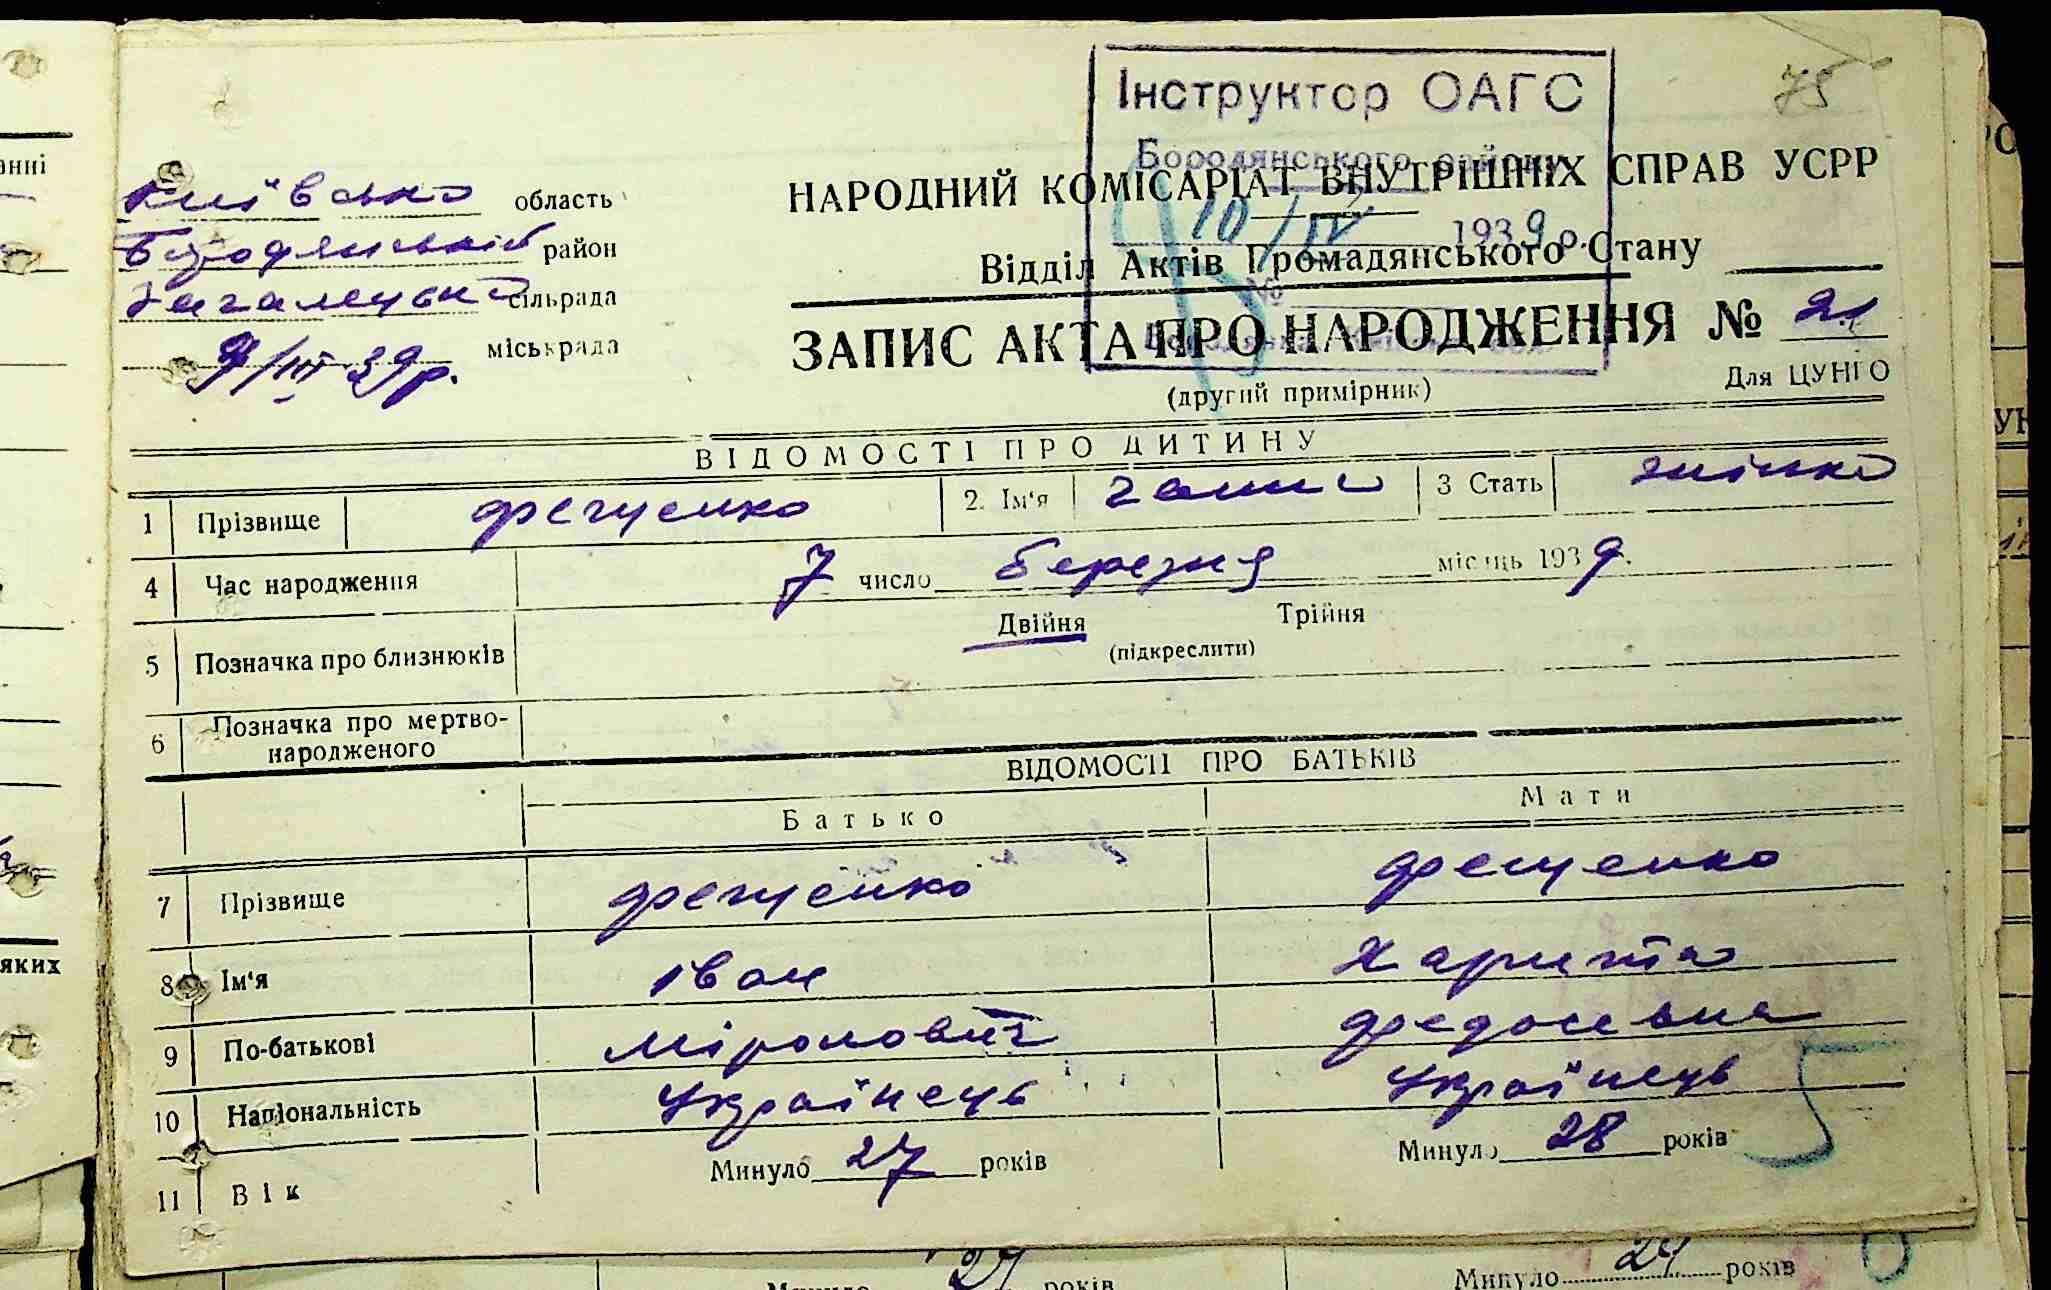 75
Інструктор ОАГС
Бородянського району
10/IV 1939 р.
№
Київська область
Бородянській район
Загалецька сільрада
міськрада
9/III 39 р.
НАРОДНИЙ КОМІСАРІАТ ВНУТРІШНІХ СПРАВ УСРР
Відділ Актів Громадянського Стану
ЗАПИС АКТА ПРО НАРОДЖЕННЯ № 21
(другий примірник) Для ЦУНГО
ВІДОМОСТІ ПРО ДИТИНУ
1 Прізвище Фещенко 2. Ім'я Ганна 3 Стать жінка
4 Час народження 7 число березня місяць 1939.
5 Позначка про близнюків Двійня Трійня
(підкреслити)
6 Позначка про мертво-
народженого
ВІДОМОСТІ ПРО БАТЬКІВ
Батько Мати
7 Прізвище Фещенко Фещенко
8 Ім'я Іван Харитта
9 По-батьковіМіронович Федосевна
10 Національність Українець Українець
5
11 Вік Минуло 27 років Минуло 28 років
Минуло 27 років Минуло 24 років
анні
яких